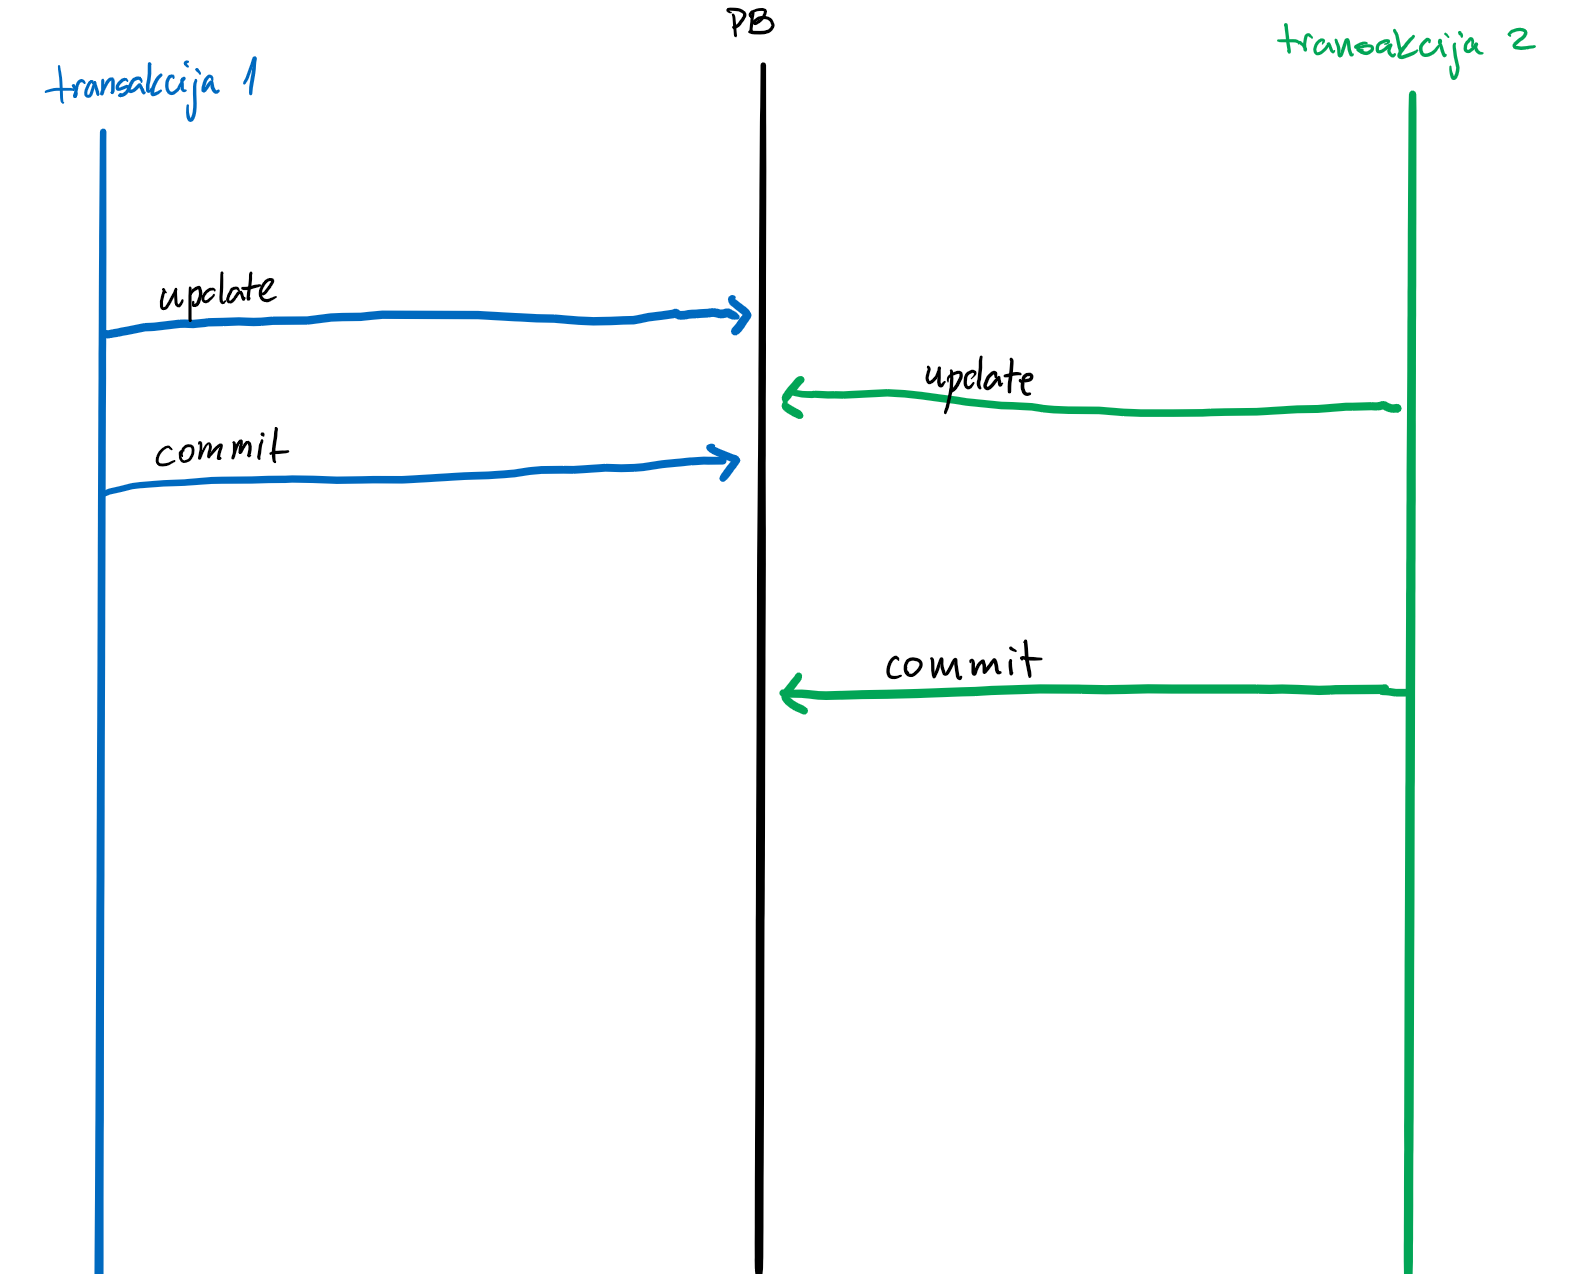 PB
transakcija 1
transakcija 2
update
update
commit
commit